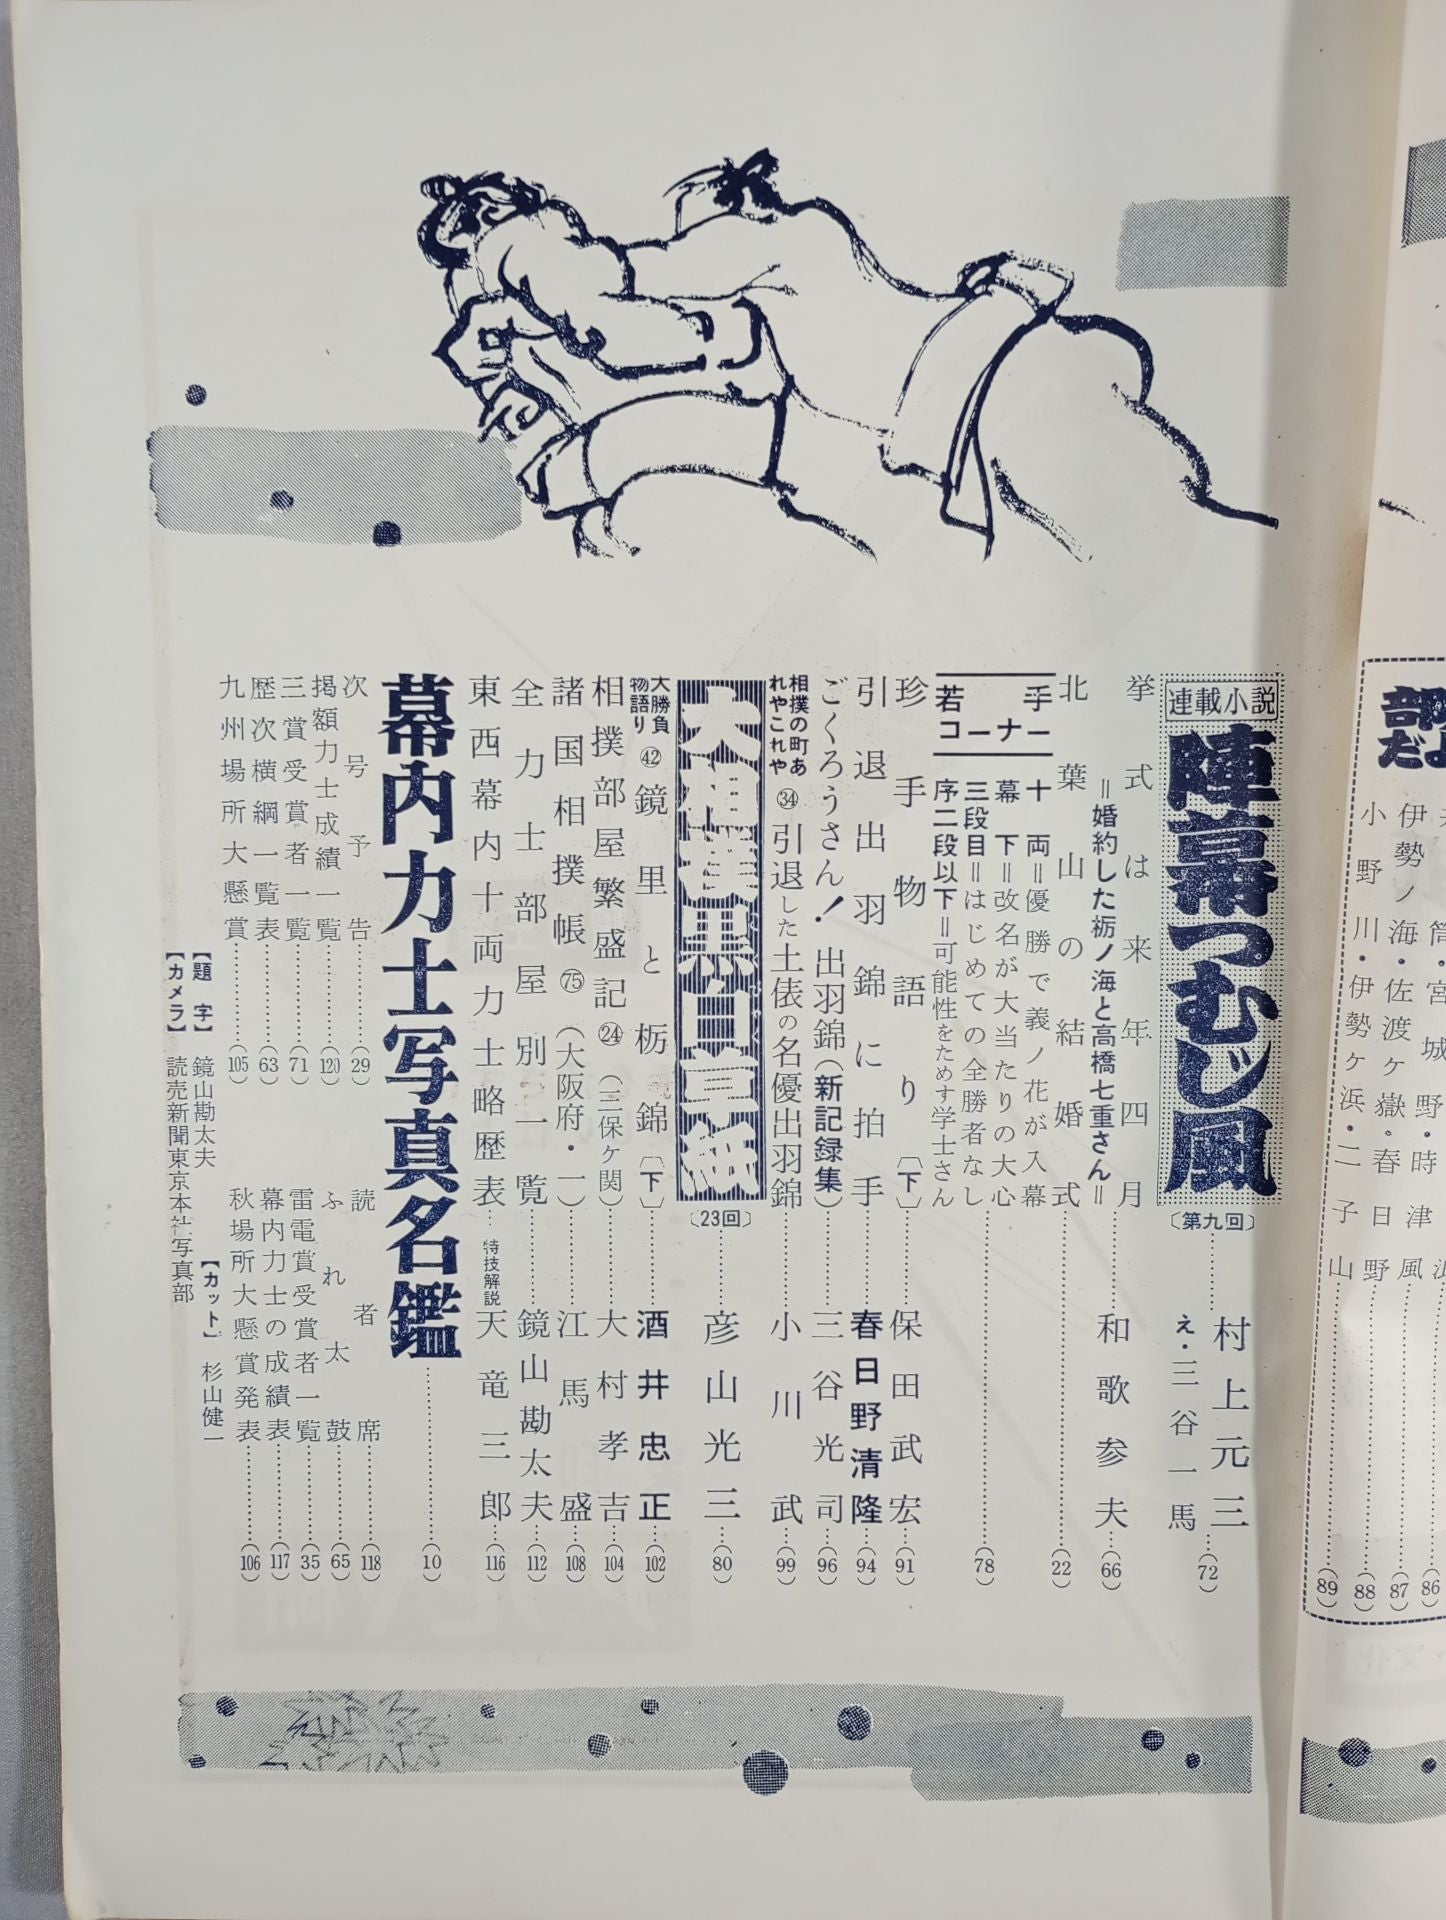 部
だよ
筒・宮城野・時津風
伊勢ノ海・佐渡ヶ嶽・春日野
小野川・伊勢ヶ浜・二子山
(86
87
88
89
連載小説
陣幕つむじ風〔第九回〕……村上元三(72)
え・三谷一馬
挙式は来年四月……和歌参夫(66)
=婚約した栃ノ海と高橋七重さん=
北葉山の結婚式……(22)
若手コーナー……(78)
十両=優勝で義ノ花が入幕
幕下=改名が大当たりの大心
三段目=はじめての全勝者なし
序二段以下=可能性をためす学士さん
珍手物語り〔下〕……保田武宏(91)
引退出羽錦に拍手……春日野清隆(94)
ごくろうさん!出羽錦(新記録集)……三谷光司(96)
相撲の町あれやこれや㉞引退した土俵の名優出羽錦……小川武(99)
大相撲黒白草紙〔23回〕……彦山光三(80)
大勝負物語り㊷鏡里と栃錦〔下〕……酒井忠正(102)
相撲部屋繁盛記㉔(三保ヶ関)……大村孝吉(104)
諸国相撲帳(75)(大阪府・一)……江馬盛(108)
全力士部屋別一覧……鏡山勘太夫(112)
東西幕内十両力士略歴表…特技解説 天竜三郎(116)
幕内力士写真名鑑……(10)
次号予告……(29)
掲額力士成績一覧……(120)
三賞受賞者一覧……(71)
歴次横綱一覧表……(63)
九州場所大懸賞……(105)
読者席……(118)
ふれ太鼓……(65)
雷電賞受賞者一覧……(35)
幕内力士の成績表……(117)
秋場所大懸賞発表……(106)
【題字】鏡山勘太夫
【カット】杉山健一
【カメラ】読売新聞東京本社写真部